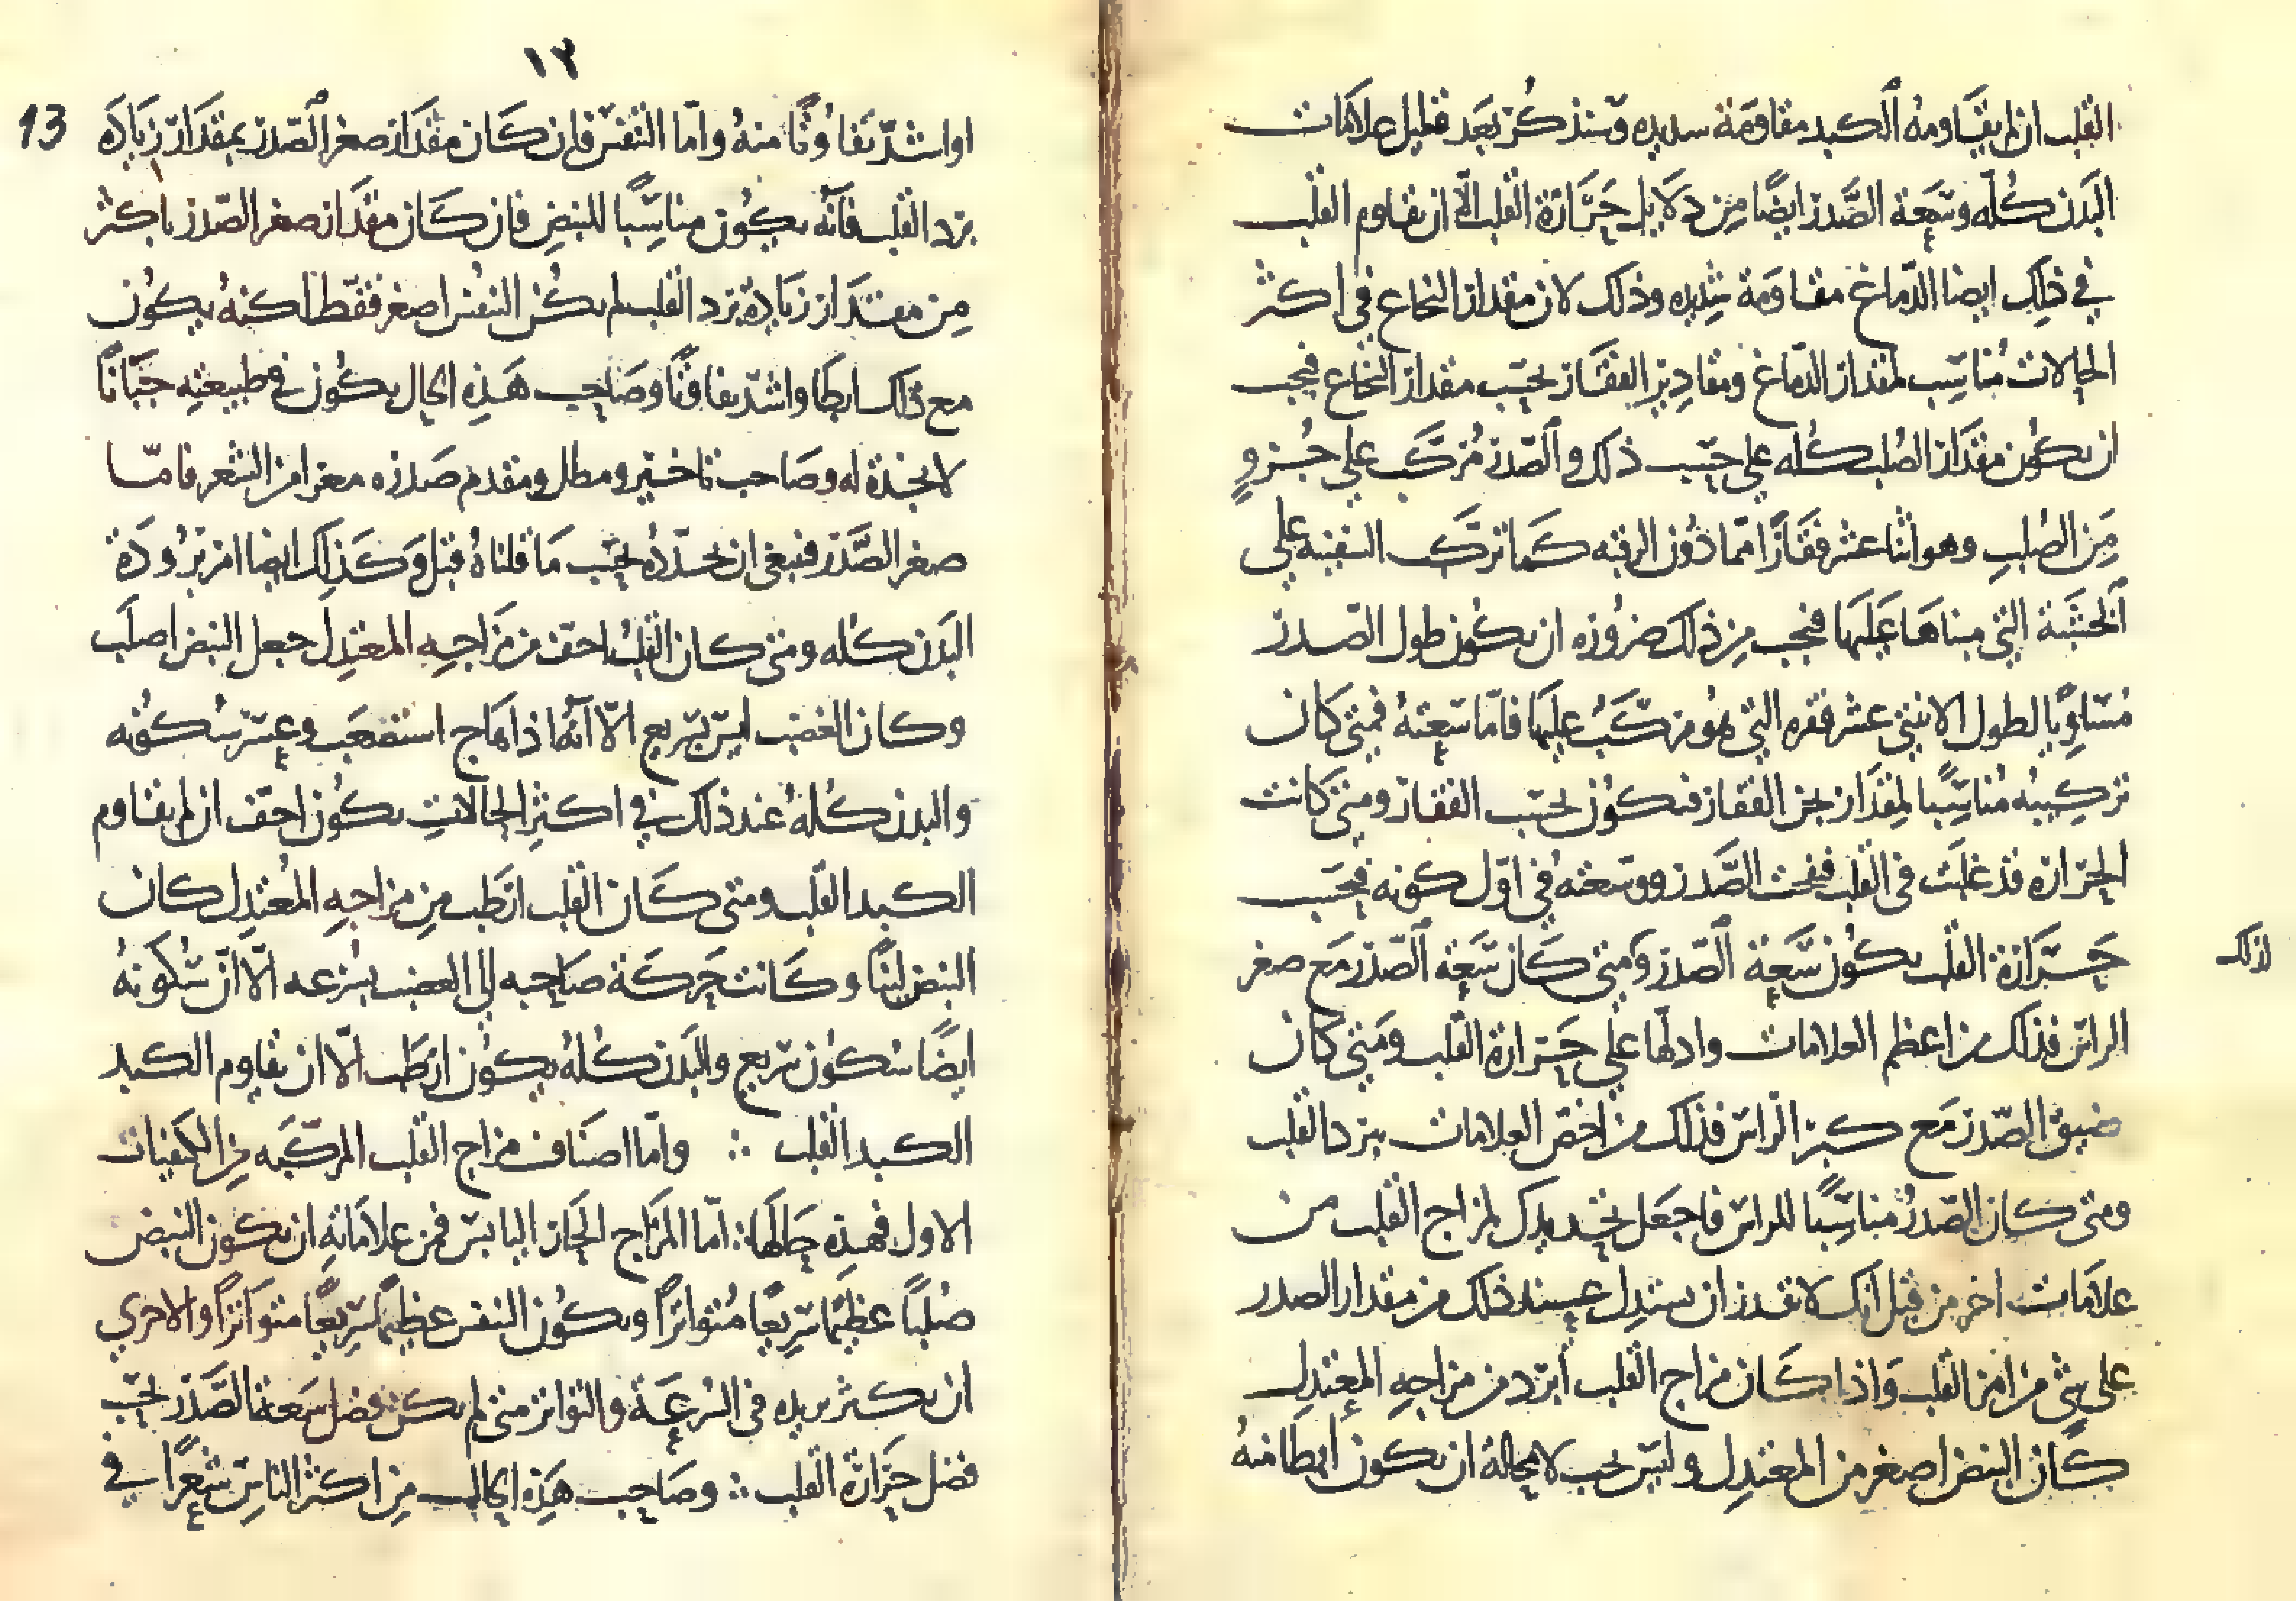 القلب ان لم يقاومه الكبد مقاومة شديده وسنذكر بعد قليل علامات
البدن كله وسعة الصدر ايضا من دلايل حرارة القلب الا ان يقاوم القلب
في ذلك ايضا الدماغ مقاومة شديده وذلك لان مقدار النخاع في اكثر
الحالات مناسب لمقدار الدماغ ومقادير الفقار بحسب مقدار النخاع فيجب
ان يكون مقدار الصلب كله على حسب ذلك والصدر مركب على جزو
من الصلب وهو اثنا عشر فقارا مما دون الرقبه كما تركب السفينه على
الخشبة التي مبناها عليها فيجب من ذلك ضروره ان يكون طول الصدر
مساويا لطول الاثنتي عشر فقره التي هو مركب عليها فاما سعته فمتى كان
تركيبه مناسبا لمقدار بحر الفقار فيكون بحسب الفقار ومتى كانت
الحراره قد غلبت في القلب فتحت الصدر ووسعته في اول كونه فبحسب
حرارة القلب يكون سعة الصدر ومتى كان سعة الصدر مع صغر
لذلك
الراس فذلك من اعظم العلامات وادلها على حرارة القلب ومتى كان
ضيق الصدر مع كبر الراس فذلك من اخص العلامات ببرد القلب
ومتى كان الصدر مناسبا للراس فاجعل بحثك لمزاج القلب من
علامات اخر من قبل انك لا تقدر ان تستدل عند ذلك من مقدار الصدر
على شي من امر القلب واذا كان مزاج القلب ابرد من مزاجه المعتدل
كان النبض اصغر من المعتدل وليس يجب لا محالة ان يكون ابطا منه
١٣
13
او اشد تفاوتا منه واما النفس فان كان مقدار صغر الصدر بمقدار زيادة
برد القلب فانه يكون مناسبا للنبض فان كان مقدار صغر الصدر باكثر
من مقدار زيادة برد القلب لم يكن النفس اصغر فقط لكنه يكون
مع ذلك ابطا واشد تفاوتا وصاحب هذه الحال يكون في طبيعته جبانا
لا نجدة له وصاحب تاخير ومطل ومقدم صدره معرا من الشعر فاما
صغر الصدر فينبغي ان تحدده بحسب ما قلناه قبل وكذلك ايضا امر برودة
البدن كله ومتى كان القلب اجف من مزاجه المعتدل جعل النبض اصلب
وكان الغضب ليس بسريع الا انه اذا هاج استصعب وعسر سكونه
والبدن كله عند ذلك في اكثر الحالات يكون اجف ان لم يقاوم
الكبد القلب ومتى كان القلب ارطب من مزاجه المعتدل كان
النبض لينا وكانت حركة صاحبه الى الغضب بسرعه الا ان سكونه
ايضا سكون سريع والبدن كله يكون ارطب الا ان يقاوم الكبد
الكبد القلب ∴ واما اصناف مزاج القلب المركبه من الكيفيات
الاول فهذه حالها: اما المزاج الحار اليابس فمن علاماته ان يكون النبض
صلبا عظيما سريعا متواترا ويكون النفس عظيما سريعا متواترا والاحري
ان يكثر تزيده في السرعة والتواتر متى لم يكن فضل سعة الصدر بحسب
فضل حرارة القلب ∴ وصاحب هذه الحال من اكثر الناس شعرا في